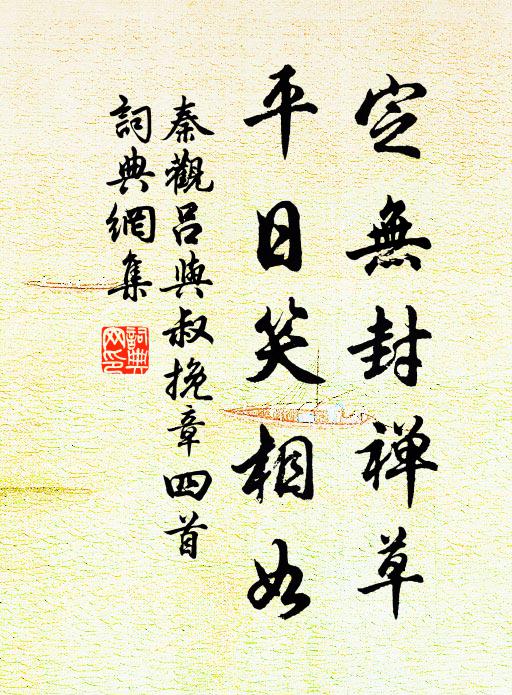 定無封禪草
平日笑相如
秦觀呂與叔挽章四首
詞典網集
詞典
网印